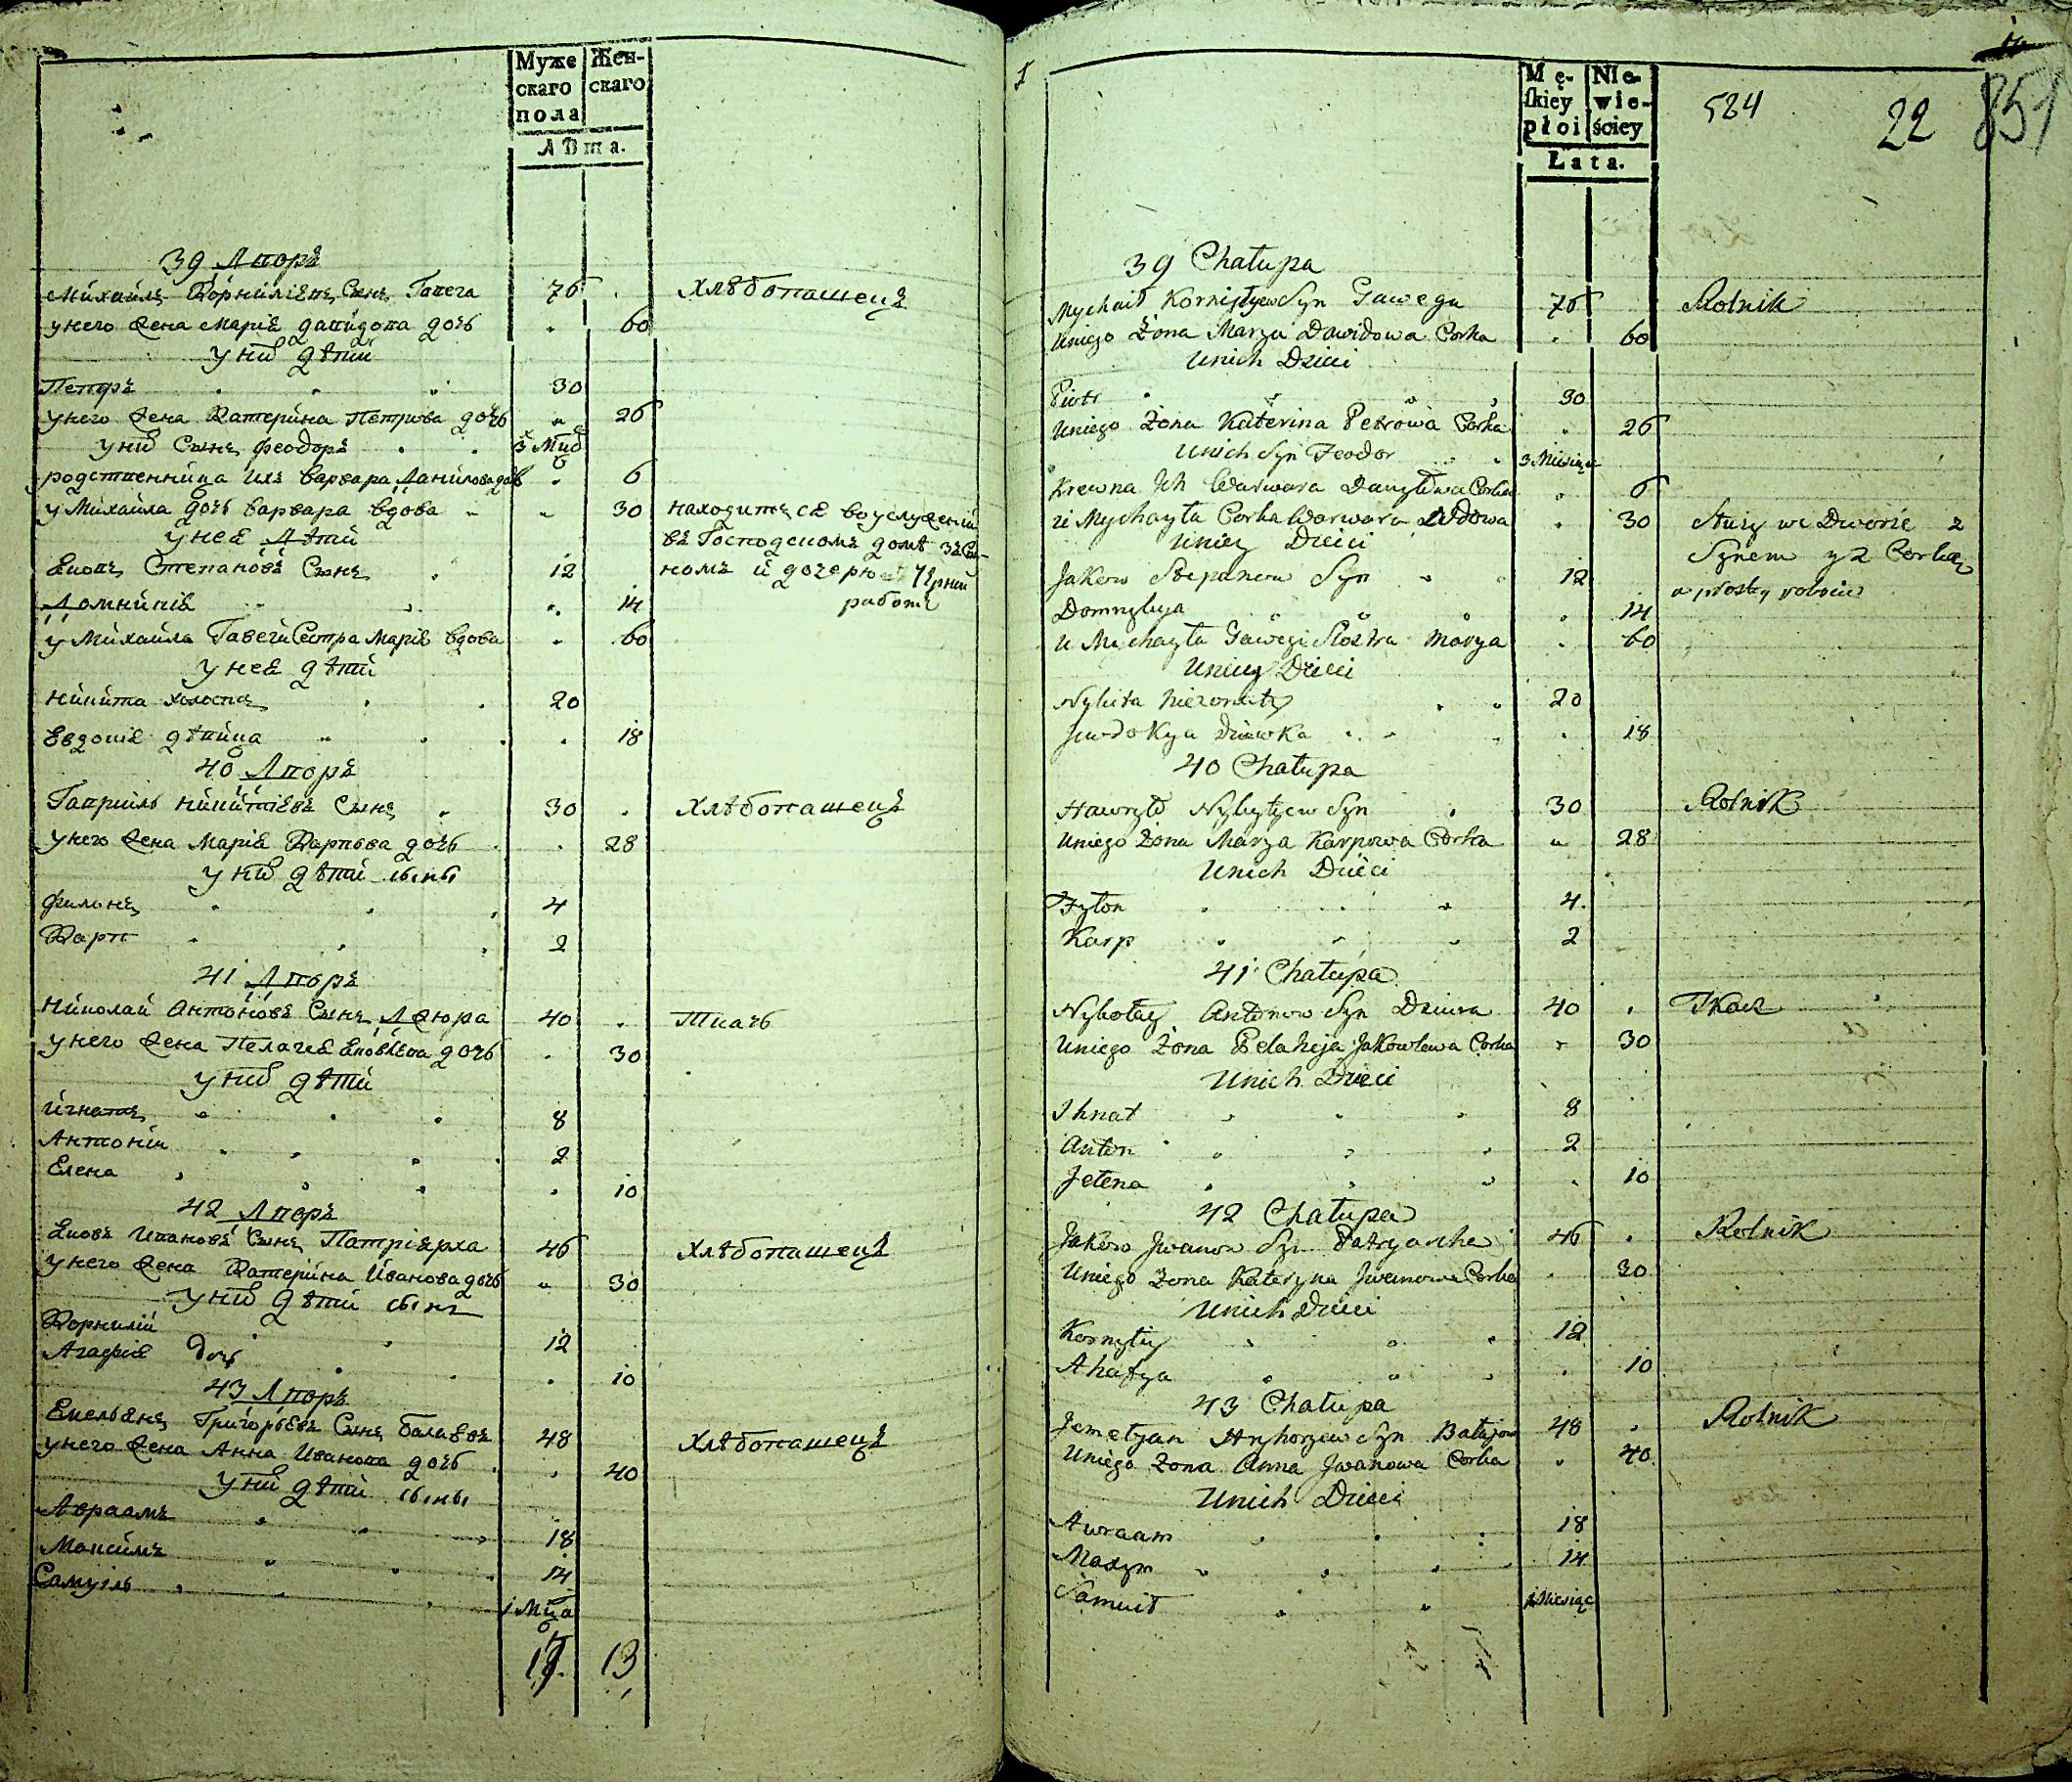 Муже
скаго
пола
Жен-
скаго
Лѣта.
39 Дворъ
Михайлъ Корниліевъ Сынъ Гавега 76
хлѣбопашецъ
у него жена Марія Давидова дочь 60
у них дѣти
Петръ 30
у него жена Катерина Петрова дочь 26
у них Сынъ Феодоръ 3 мца
родственница ихъ Варвара Данилова дочь 6
у Михайла дочь Варвара вдова 30
находится во услуженіи
у нея дѣти
въ Господскомъ домѣ зъ Сы-
Яковъ Степановъ Сынъ 12
номъ и дочерью в чорній
Домникія 14
работѣ
у Михайла Гавеги Сестра Марія вдова 60
у нея дѣти
Никита холостъ 20
Евдокія дѣвица 18
40 Дворъ
Гавриилъ Никитіевъ Сынъ 30
хлѣбопашецъ
у него жена Марія Карпова дочь 28
у них дѣти сыны
Филонъ 4
Карп 2
41 Дворъ
Николай Антоновъ Сынъ Дзюра 40
Ткачь
у него жена Пелагея Яковлева дочь 30
у них дѣти
Игнатъ 8
Антоній 2
Елена 10
42 Дворъ
Яковъ Ивановъ Сынъ Патріярха 46
хлѣбопашецъ
у него жена Катерина Иванова дочь 30
у них дѣти сынъ
Корнилій 12
Агафія дочь 10
43 Дворъ
Емельянъ Григорьевъ Сынъ Балаевъ 48
хлѣбопашецъ
у него жена Анна Иванова дочь 40
у них дѣти сыны
Авраамъ 18
Максимъ 14
Самуилъ 1 мца
17. 13
Mę-
skiey
płoi
Nie-
wie-
ściey
Łata.
524
22
851
39 Chałupa
Mychaił Korniłyjew Syn Gawega 76 Rolnik
Uniego Żona Marya Dawidowa Corka 60
Unich Dzieci
Piotr 30
Uniego Żona Katerina Petrowa Corka 26
Unich Syn Feodor 3 Miesiące
Krewna Ich Warwara Danyłowa Corka 6
u Mychayła Corka Warwara Wdowa 30
Służy we Dworie z
Uniey Dzieci
Synem y z Corką
Jakow Stepanow Syn 12
w prostey robocie
Domnykya 14
u Mychayła Gawegi Siostra Marya 60
Uniey Dzieci
Nykita nieżonaty 20
Jewdokya Dziewka 18
40 Chałupa
Hawryło Nykytyew Syn 30 Rolnik
Uniego Żona Marya Karpowa Corka 28
Unich Dzieci
Fyłon 4.
Karp 2
41 Chałupa
Nykołay Antonow Syn Dziura 40 Tkacz
Uniego Żona Pelaheja Jakowlewa Corka 30
Unich Dzieci
Ihnat 8
Anton 2
Jełena 10
42 Chałupa
Jakow Jwanow Syn Patryarcha 46 Rolnik
Uniego Żona Kateryna Jwanowa Corka 30
Unich Dzieci
Kornyłiy 12
Ahafya 10
43 Chałupa
Jemeljan Hryhorjew Syn Bałajow 48 Rolnik
Uniego Żona Anna Jwanowa Corka 40
Unich Dzieci
Awraam 18
Maxym 14
Samuił 1 Miesiąc